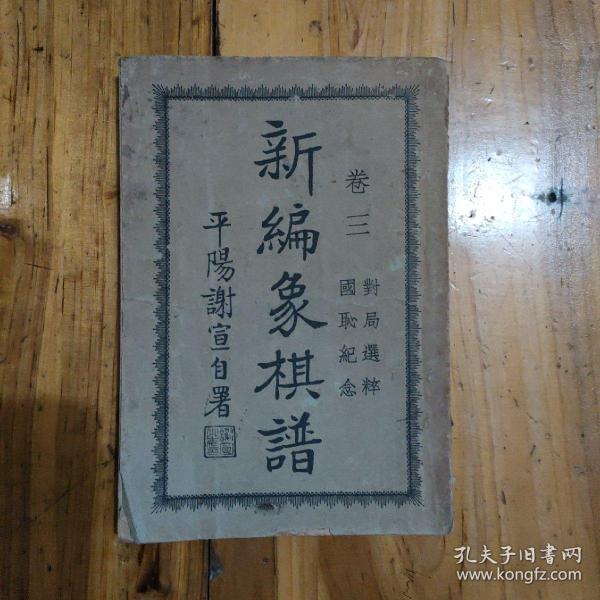 卷三
對局選粹
國恥紀念
新編象棋譜
平陽謝宣自署
孔夫子旧书网
www.kongfz.com